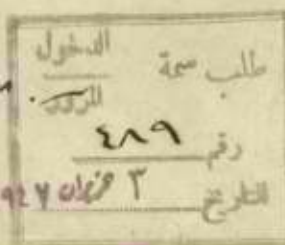 طلب سمة الدخول
المرور
رقم ٤٨٩
التاريخ ٣ حزيران ٩٢٧